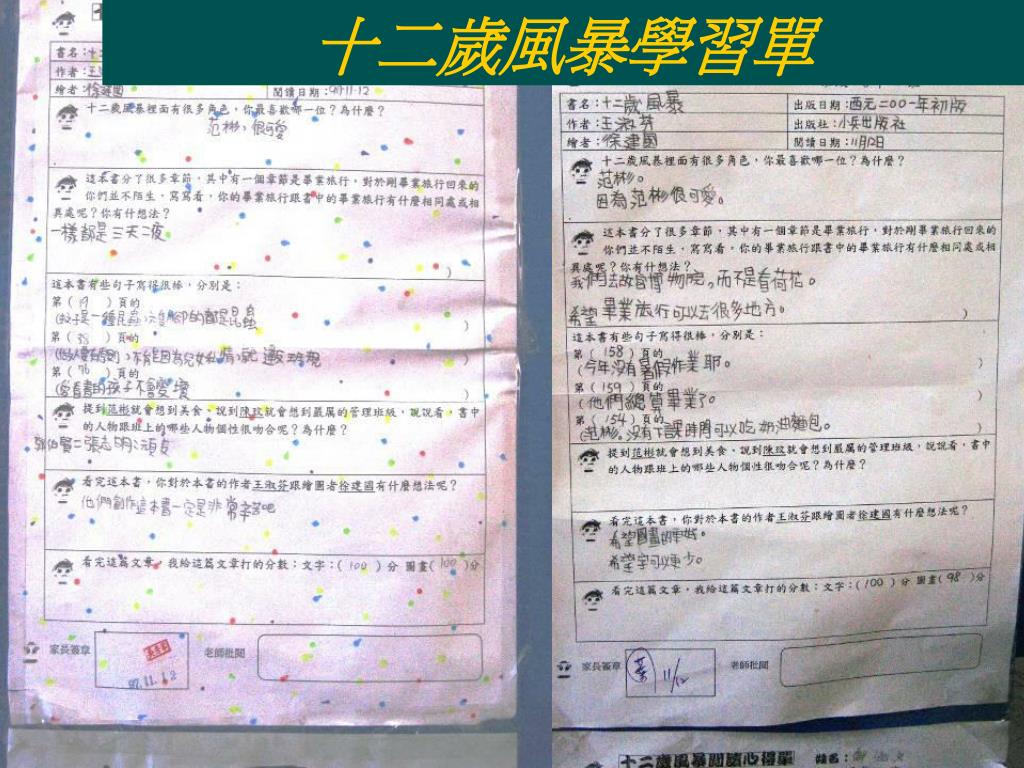 十二歲風暴學習單
書名：十
作者：王
繪者：徐建國
閱讀日期：97.11.12
十二歲風暴裡面有很多角色，你最喜歡哪一位？為什麼？
范彬，很可愛
這本書分了很多章節，其中有一個章節是畢業旅行，對於剛畢業旅行回來的
你們並不陌生，寫寫看，你的畢業旅行跟書中的畢業旅行有什麼相同處或相
異處呢？你有什想法？
一樣都是三天二夜
這本書有些句子寫得很棒，分別是：
第（19）頁的
（蚊子是一種昆蟲，六隻腳的都是昆蟲）
第（38）頁的
第（76）頁的
（愛看書的孩子不會變壞）
提到范彬就會想到美食、說到陳玟就會想到嚴厲的管理班級，說說看，書中
的人物跟班上的哪些人物個性很吻合呢？為什麼？
看完這本書，你對於本書的作者王淑芬跟繪圖者徐建國有什麼想法呢？
他們創作這本書一定是非常辛苦吧
看完這篇文章，我給這篇文章打的分數：文字：（100）分 圖畫（100）分
家長簽章
97.11.12
老師批閱
書名：十二歲風暴
出版日期：西元二00一年初版
作者：王淑芬
出版社：小兵出版社
繪者：徐建國
閱讀日期：11月12日
十二歲風暴裡面有很多角色，你最喜歡哪一位？為什麼？
范彬。
因為范彬很可愛。
這本書分了很多章節，其中有一個章節是畢業旅行，對於剛畢業旅行回來的
你們並不陌生，寫寫看，你的畢業旅行跟書中的畢業旅行有什麼相同處或相
異處呢？你有什想法？
我們去故宮博物院，而不是看荷花。
希望畢業旅行可以去很多地方。
這本書有些句子寫得很棒，分別是：
第（158）頁的
（今年沒有暑假作業耶。）
第（159）頁的
（他們總算畢業了。）
第（154）頁的
（范彬。沒有下課時間可以吃奶油麵包。）
提到范彬就會想到美食、說到陳玟就會想到嚴厲的管理班級，說說看，書中
的人物跟班上的哪些人物個性很吻合呢？為什麼？
看完這本書，你對於本書的作者王淑芬跟繪圖者徐建國有什麼想法呢？
希望圖畫的更好。
希望字可以更少。
看完這篇文章，我給這篇文章打的分數：文字：（100）分 圖畫（98）分
家長簽章
11/12
老師批閱
十二歲風暴閱讀心得單
姓名：